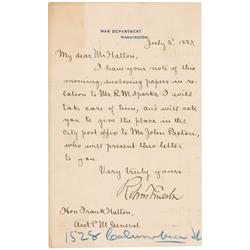 WAR DEPARTMENT
WASHINGTON.
July 2d, 1883.
My dear Mr Hatton.
I have your note of this
morning, enclosing papers in re-
lation to Mr R.M. Sparks. I will
take care of him, and will ask
you to give the place in the
city post office to Mr John
who will present this letter
to you
Very truly yours
Robt Lincoln
Hon Frank Hatton,
Asst P.M. General.
1528 Columbia St